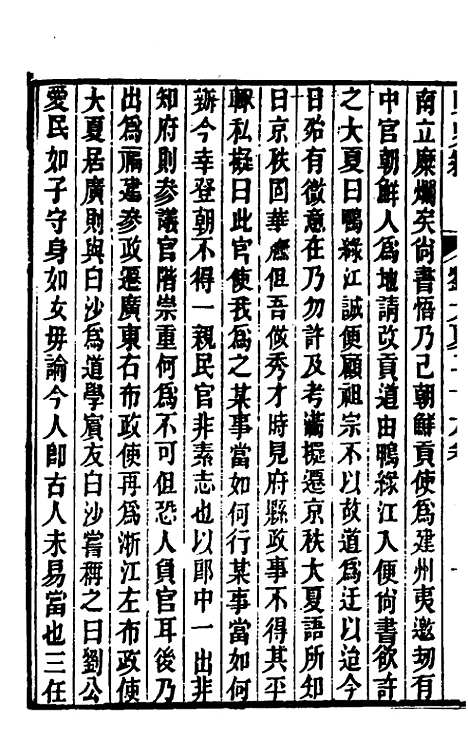 南立糜爛矣尚書悟乃已朝鮮貢使爲建州夷邀刼有
中官朝鮮人爲地請改貢道由鴨綠江入便尚書欲許
之大夏曰鴨綠江誠便顧祖宗不以故道爲迂以迨今
日殆有微意在乃勿許及考滿擬遷京秩大夏語所知
曰京秩回華應但吾做秀才時見府縣政事不得其平
輙私擬曰此官使我爲之某事當如何行某事當如何
辦今幸登朝不得一親民官非素志也以郎中一出非
知府則參議官階崇重何爲不可但恐人負官耳後乃
出爲福建參政遷廣東右布政使再爲浙江左布政使
大夏居廣則與白沙爲道學賓友白沙嘗稱之曰劉公
愛民如子守身如女毋論今人卽古人未易當也三任
劉大夏